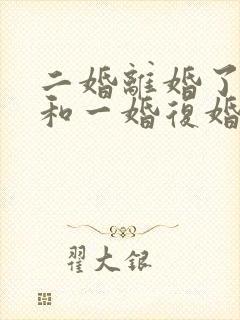 二婚離婚了
和一婚復婚
翟大銀